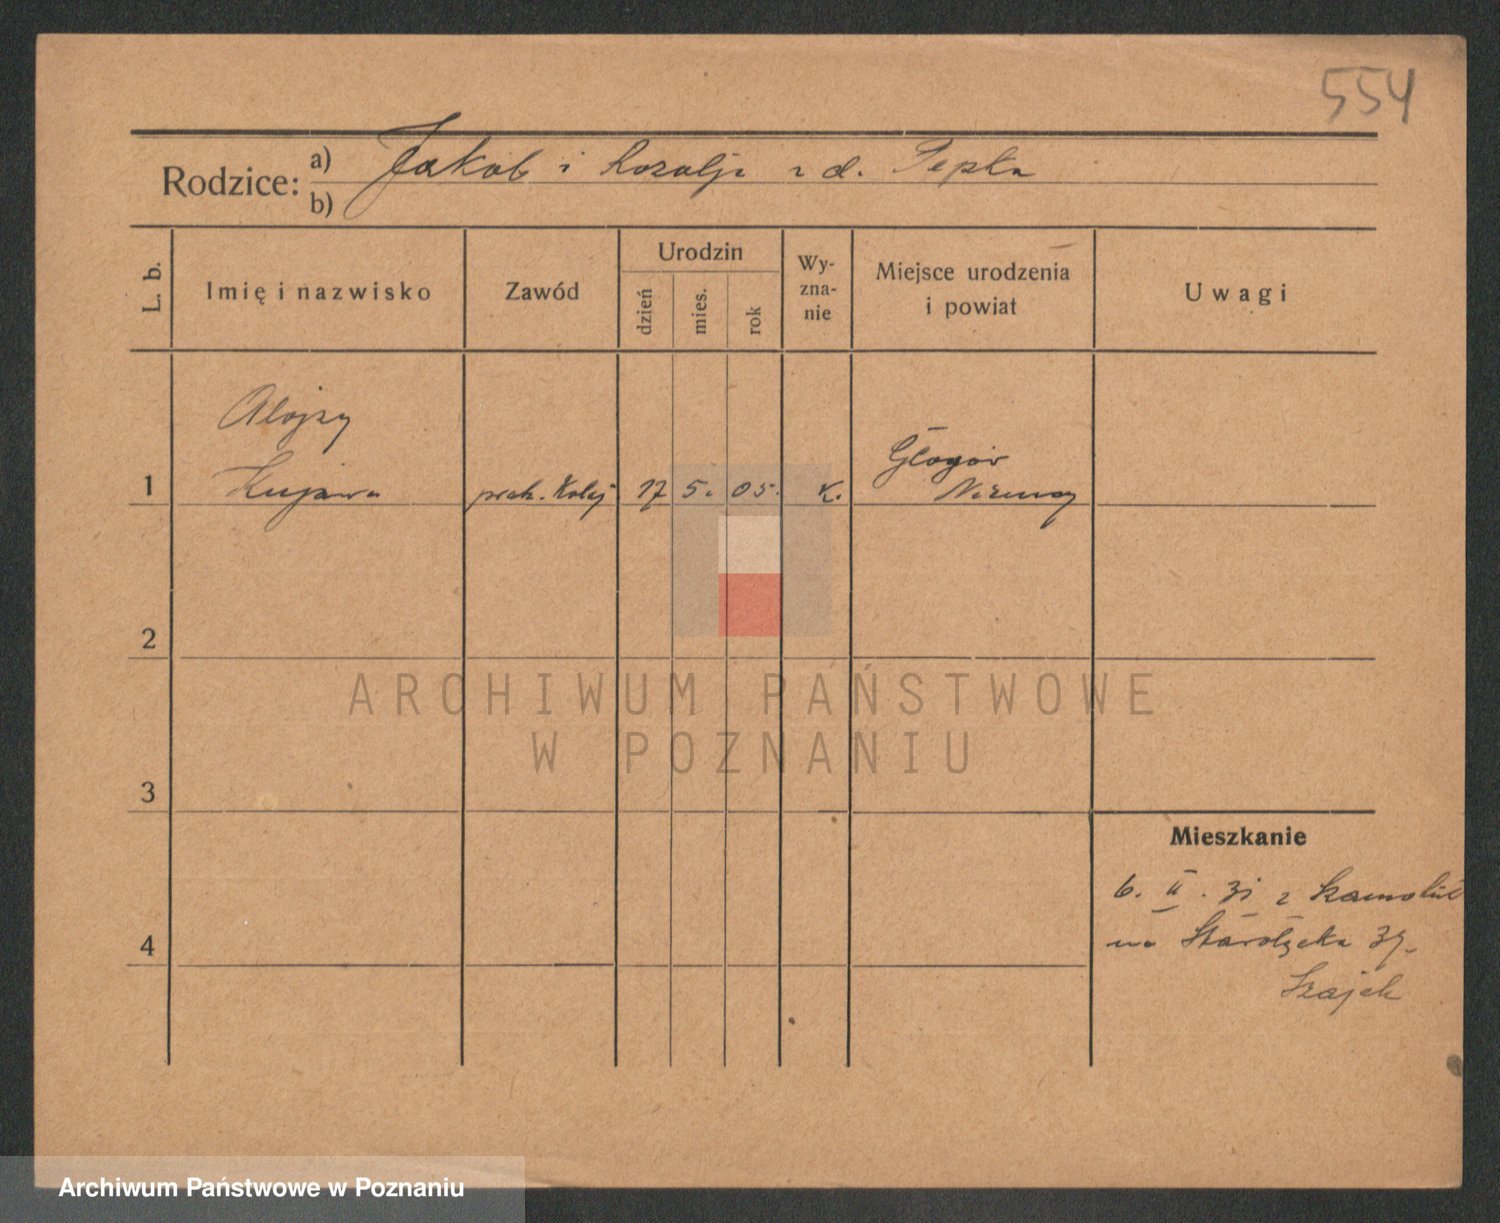 554
Rodzice: a) Jakob i Rozalja z d. Pepla
b)
L. b. Imię i nazwisko Zawód Urodzin dzień mies. rok Wy-zna-nie Miejsce urodzenia i powiat Uwagi
Alojzy
1 Kujawa prak. Kolej 17 5. 05. K. Głogów
Niemcy
2
ARCHIWUM PAŃSTWOWE
W POZNANIU
3
Mieszkanie
6. II. 31 z
4 na Starołęcka 39.
Szajek
Archiwum Państwowe w Poznaniu